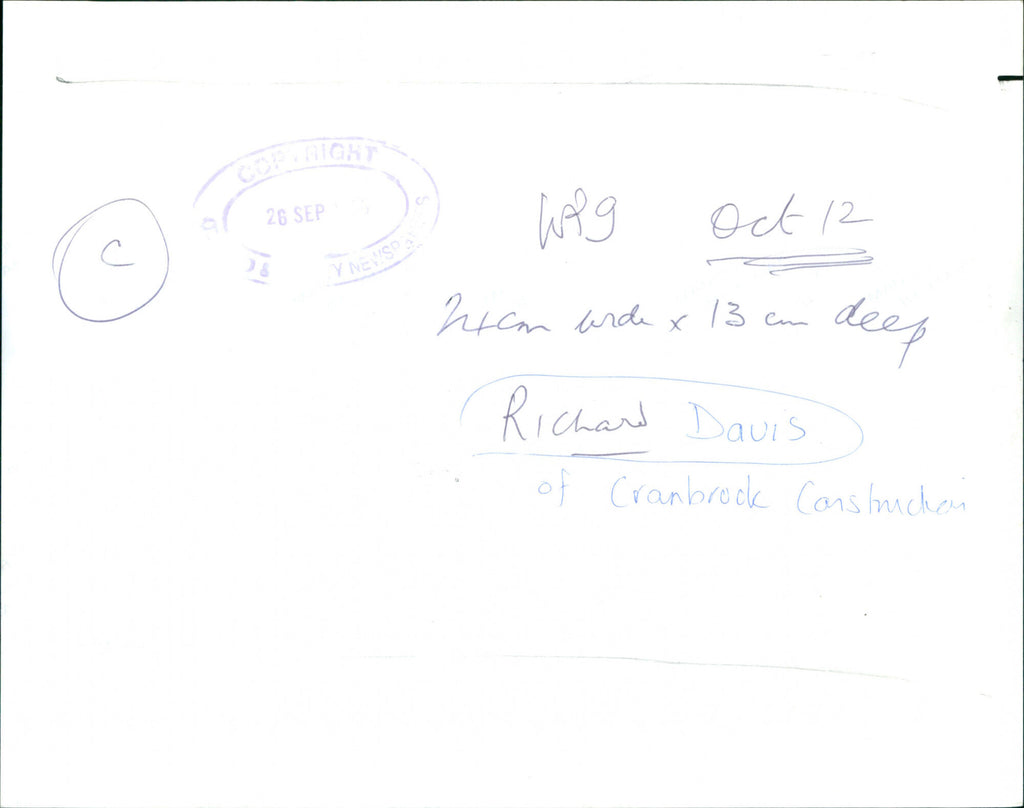 COPYRIGHT
26 SEP
Y NEWSPAPERS
C
Oct 12
24cm wide x 13 cm deep
Richard Davis
of Cranbrook Construction